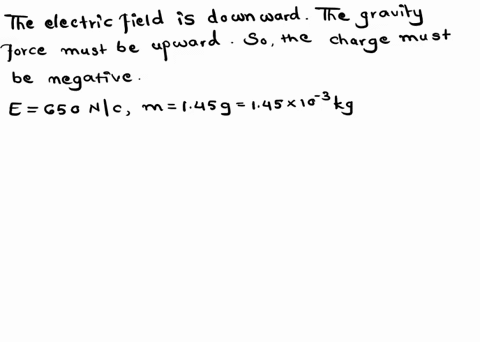 The electric field is downward. The gravity
force must be upward. So, the charge must
be negative.
E = 650 N/C, m = 1.45g = 1.45 × 10⁻³ kg